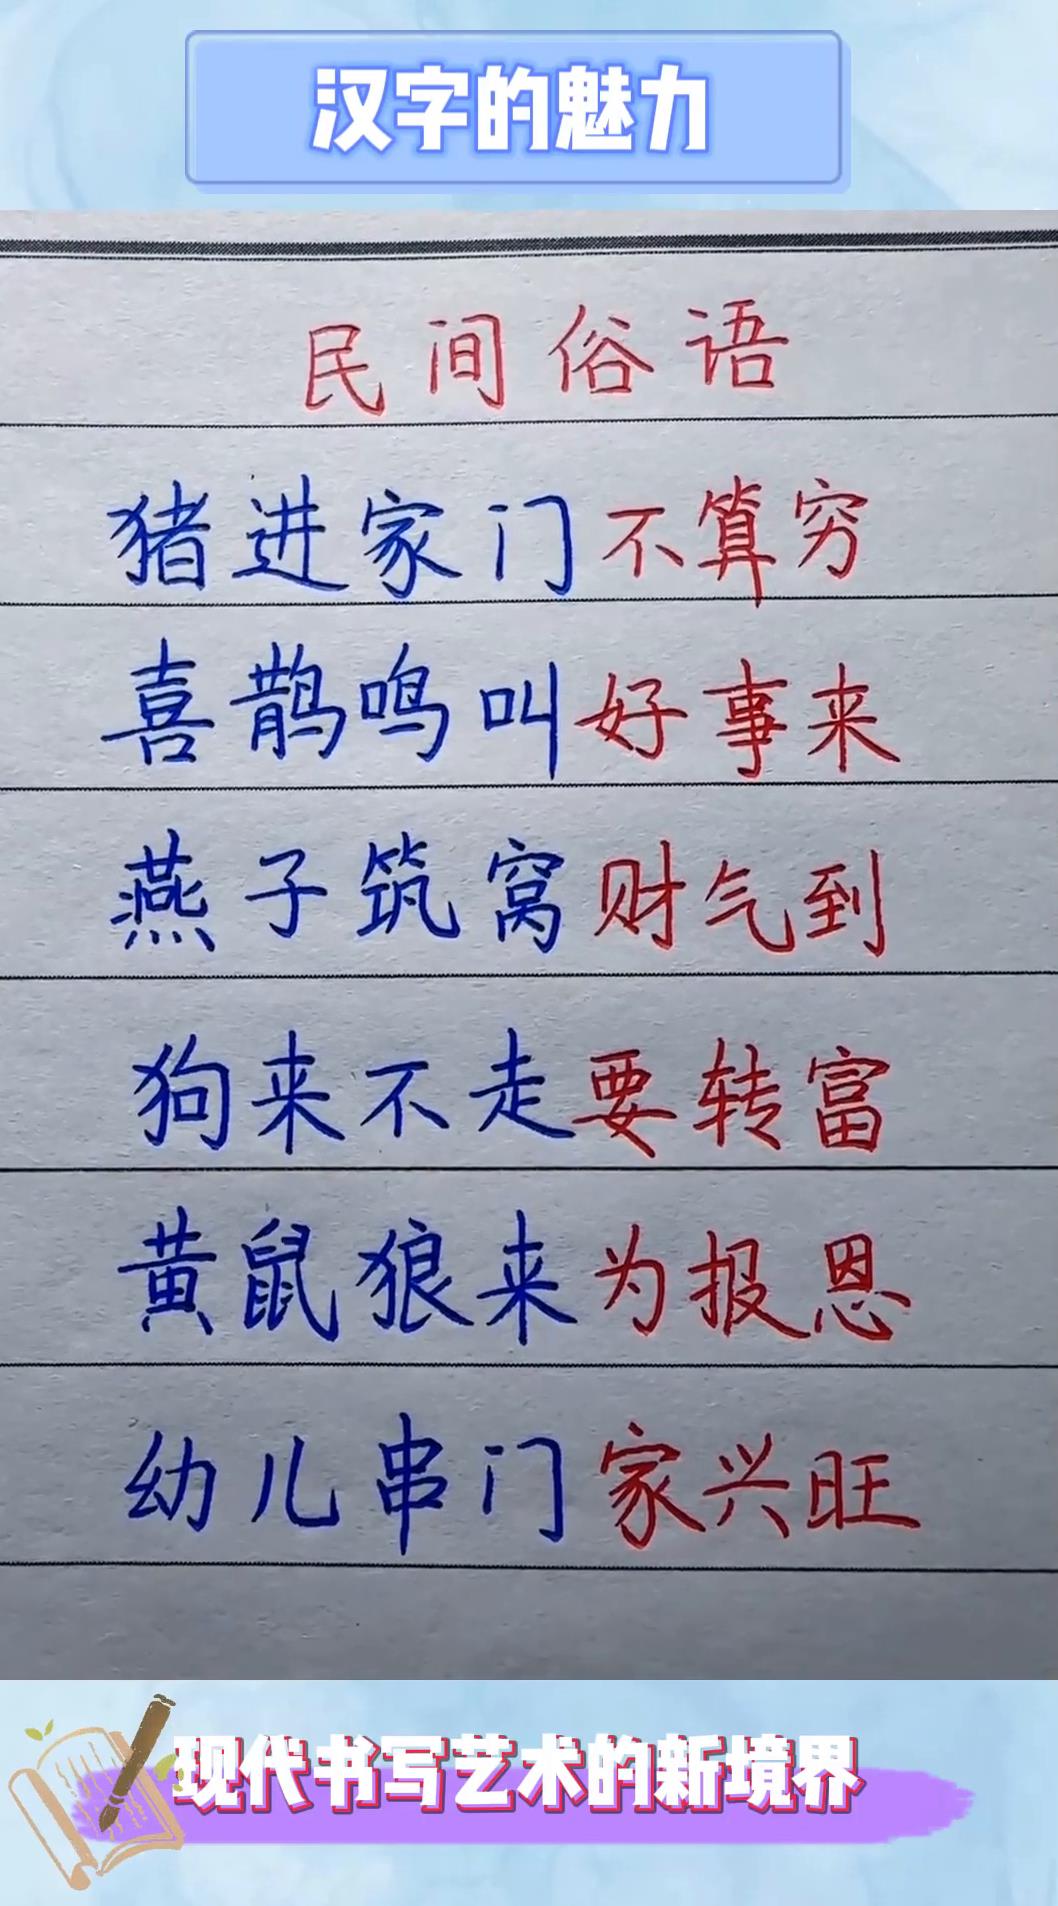 汉字的魅力
民间俗语
猪进家门不算穷
喜鹊鸣叫好事来
燕子筑窝财气到
狗来不走要转富
黄鼠狼来为报恩
幼儿串门家兴旺
现代书写艺术的新境界